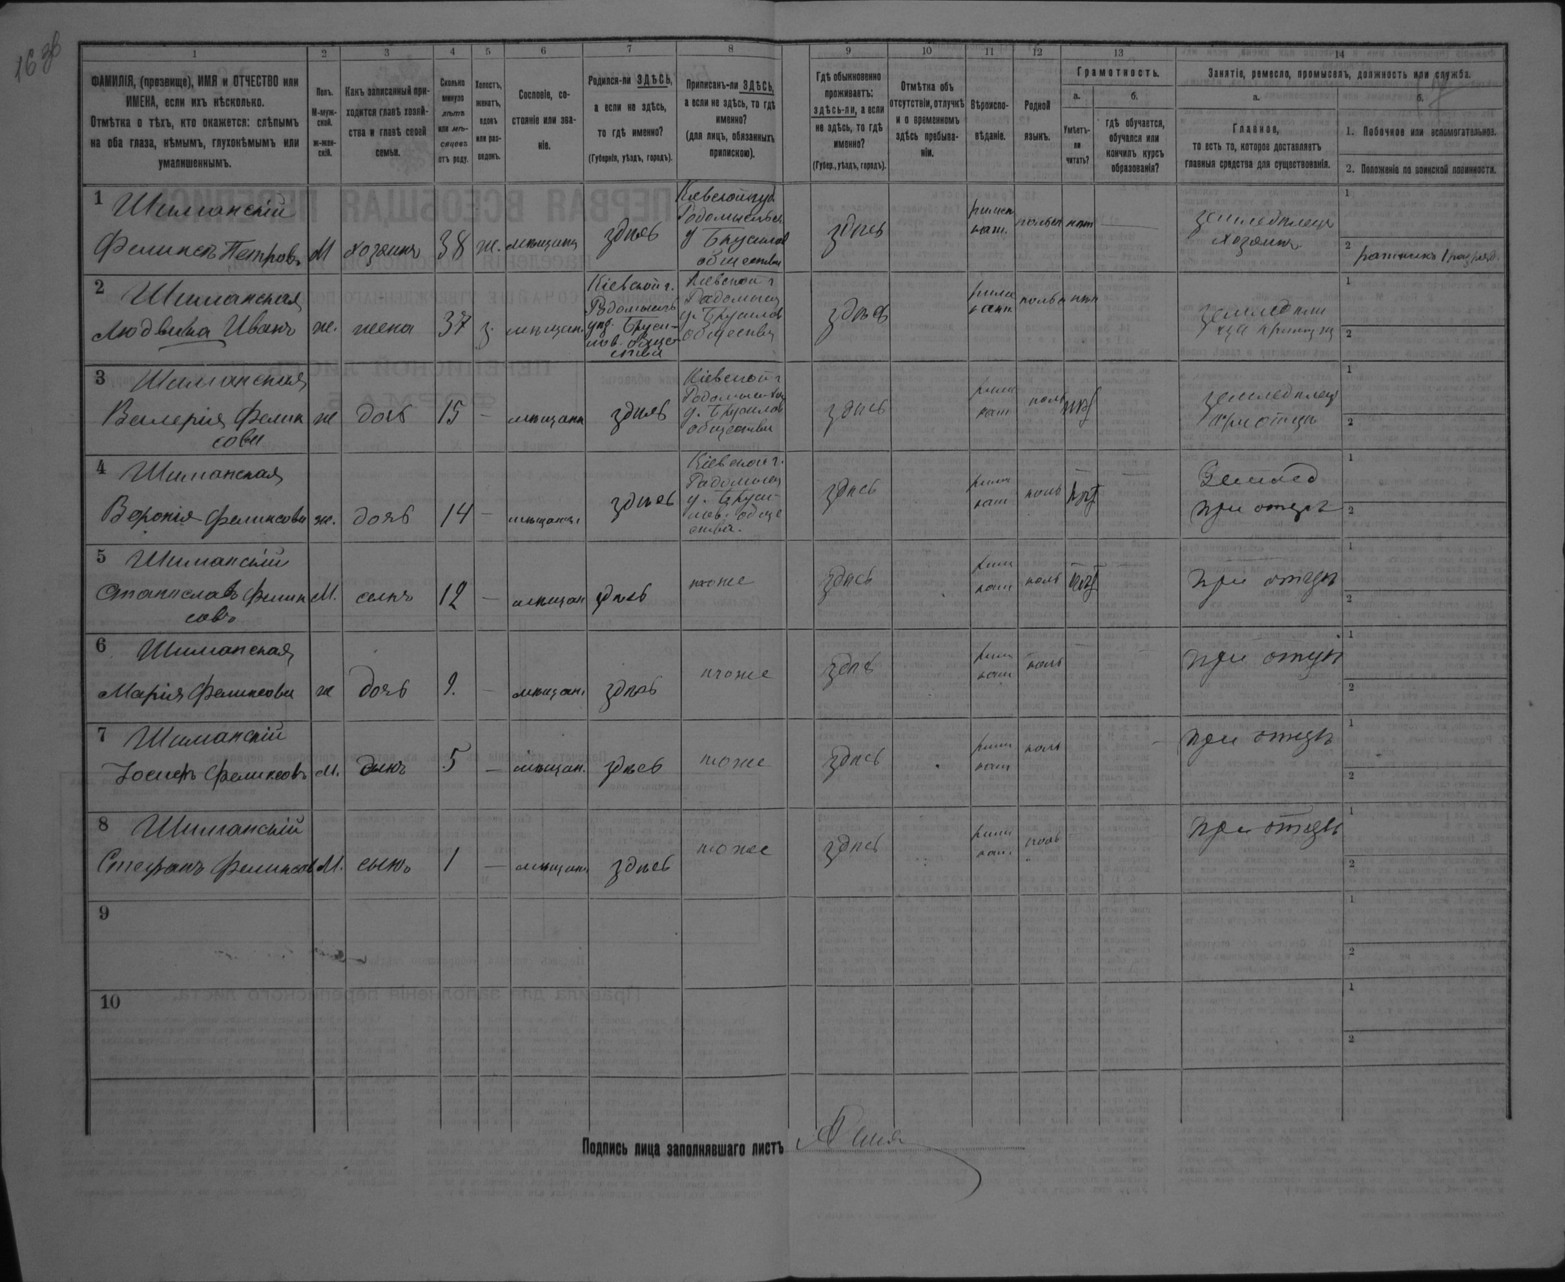 1 2 3 4 5 6 7 8 9 10 11 12 13 14
ФАМИЛІЯ, (прозвище), ИМЯ и ОТЧЕСТВО или
ИМЕНА, если ихъ нѣсколько.
Отмѣтка о тѣхъ, кто окажется: слѣпымъ
на оба глаза, нѣмымъ, глухонѣмымъ или
умалишеннымъ.
Полъ.
М-муж-
ской.
Ж-жен-
скій.
Какъ записанный при-
ходится главѣ хозяй-
ства и главѣ своей
семьи.
Сколько
минуло
лѣтъ
или мѣ-
сяцевъ
отъ роду.
Холостъ,
женатъ,
вдовъ
или раз-
веденъ.
Сословіе, со-
стояніе или зва-
ніе.
Родился-ли ЗДѢСЬ,
а если не здѣсь,
то гдѣ именно?
(Губернія, уѣздъ, городъ).
Приписанъ-ли ЗДѢСЬ,
а если не здѣсь, то гдѣ
именно?
(для лицъ, обязанныхъ
припискою).
Гдѣ обыкновенно
проживаетъ:
здѣсь-ли, а если
не здѣсь, то гдѣ
именно?
(Губер., уѣздъ, городъ).
Отмѣтка объ
отсутствіи, отлучкѣ
и о временномъ
здѣсь пребыва-
ніи.
Вѣроиспо-
вѣданіе.
Родной
языкъ.
Грамотность.
а.
Умѣетъ-
ли
читать?
б.
гдѣ обучается,
обучался или
кончилъ курсъ
образованія?
Занятіе, ремесло, промыселъ, должность или служба.
а.
Главное,
то есть то, которое доставляетъ
главныя средства для существованія.
б.
1. Побочное или вспомогательное.
2. Положеніе по воинской повинности.
1 Шиманскій
Феликсъ Петровъ М хозяинъ 38 ж. мѣщанинъ здѣсь
Кіевской губ
Радомысльск
у Брусилов
общества
здѣсь
римск
кат.
польск нѣт
земледѣлец
хозяинъ
1
2 ратникъ 1 разряд.
2 Шиманская
Людвика Иванъ ж. жена 37 з. мѣщан.
Кіевской г.
Радомысль
уѣз. Бруси-
лов. обще-
ства
Кіевской г
Радомысл
у. Брусилов
общества
здѣсь
римс
кат
польс нѣт
1
2
3 Шиманская
Валерія Фелик
сова
ж дочь 15 — мѣщанк здѣсь
Кіевской г
Радомысль
у. Брусилов
общества
здѣсь
римс
кат
поль
земледѣлец
при отцѣ
1
2
4 Шиманская
Феликсова ж. дочь 14 — мѣщанк здѣсь
Кіевской г.
Радомысл
у. Бруси-
лов. обще
ства.
здѣсь
римс
кат
поль
Землед
при отцѣ
1
2
5 Шиманскій
Станиславъ Фелик
совъ
М. сынъ 12 — мѣщан здѣсь тоже здѣсь
римс
кат
поль
при отцѣ
1
2
6 Шиманская
Марія Феликсова ж дочь 9. — мѣщан. здѣсь тоже здѣсь
римс
кат
поль
при отцѣ
1
2
7 Шиманскій
Іосифъ Феликсовъ М. сынъ 5 — мѣщан. здѣсь тоже здѣсь
римс
кат
поль
при отцѣ
1
2
8 Шиманскій
Стефанъ Феликсов М. сынъ 1 — мѣщан. здѣсь тоже здѣсь
римс
кат.
поль
при отцѣ
1
2
9
1
2
10
1
2
Подпись лица заполнявшаго листъ